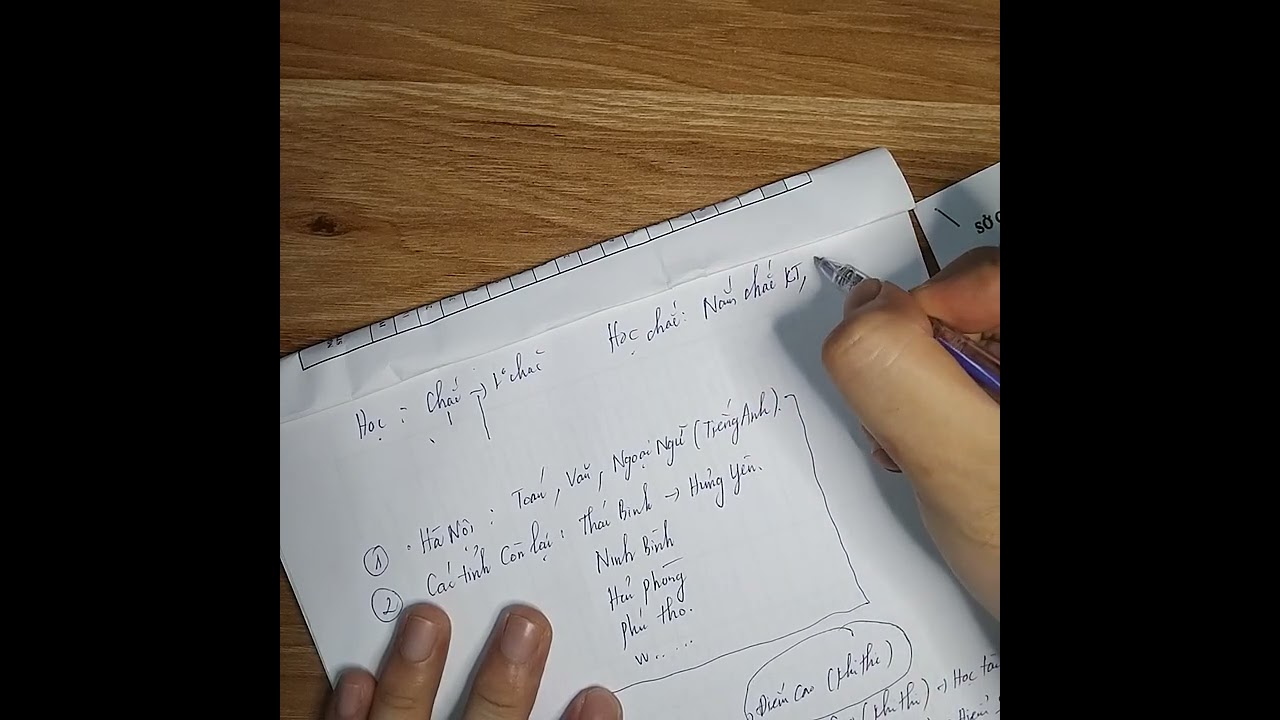 SỞ
Học chắc: Nắm chắc KT,
Học: Chắc → k° chắc
① Hà Nội: Toán, Văn, Ngoại Ngữ (Tiếng Anh).
② Các tỉnh còn lại: Thái Bình → Hưng Yên.
Ninh Bình
Hải phòng
phú thọ.
vv.....
Điểm cao (khi thi)
(khi thi) → Học
Điểm